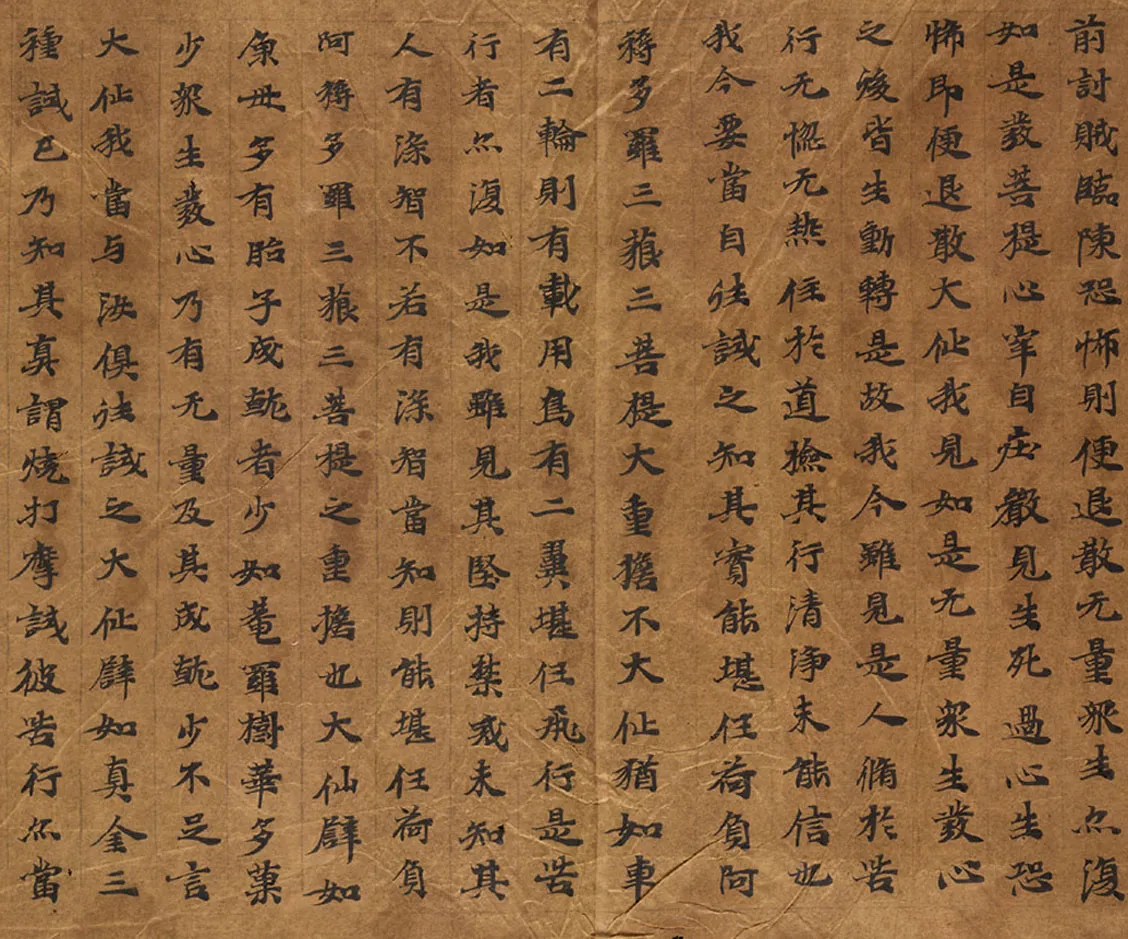 前討賊臨陳恐怖則便退散无量眾生亦復
如是發菩提心牢自庄嚴見生死過心生恐
怖即便退散大仙我見如是无量眾生發心
之後皆生動轉是故我今雖見是人脩於苦
行无惱无熱住於道撿其行清淨未能信也
我今要當自往試之知其實能堪任荷負阿
耨多羅三藐三菩提大重擔不大仙猶如車
有二輪則有載用鳥有二翼堪任飛行是苦
行者亦復如是我雖見其堅持禁戒未知其
人有深智不若有深智當知則能堪任荷負
阿耨多羅三藐三菩提之重擔也大仙譬如
魚母多有胎子成就者少如菴羅樹華多菓
少眾生發心乃有无量及其成就少不足言
大仙我當与汝俱往試之大仙譬如真金三
種試已乃知其真謂燒打摩試彼苦行亦當